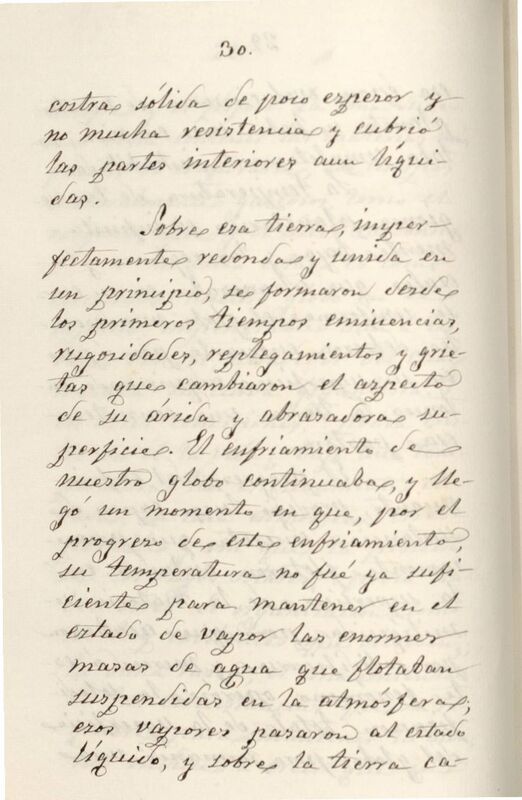 30.
costra sólida de poco espesor y
no mucha resistencia y cubrió
las partes interiores aun líqui-
das.
Sobre esa tierra, imper-
fectamente redonda y unida en
un principio, se formaron desde
los primeros tiempos eminencias,
rugosidades, replegamientos y grie-
tas que cambiaron el aspecto
de su árida y abrasadora su-
perficie. El enfriamiento de
nuestro globo continuaba, y lle-
gó un momento en que, por el
progreso de este enfriamiento,
su temperatura no fué ya sufi-
ciente para mantener en el
estado de vapor las enormes
masas de agua que flotaban
suspendidas en la atmósfera,
esos vapores pasaron al estado
líquido, y sobre la tierra ca-